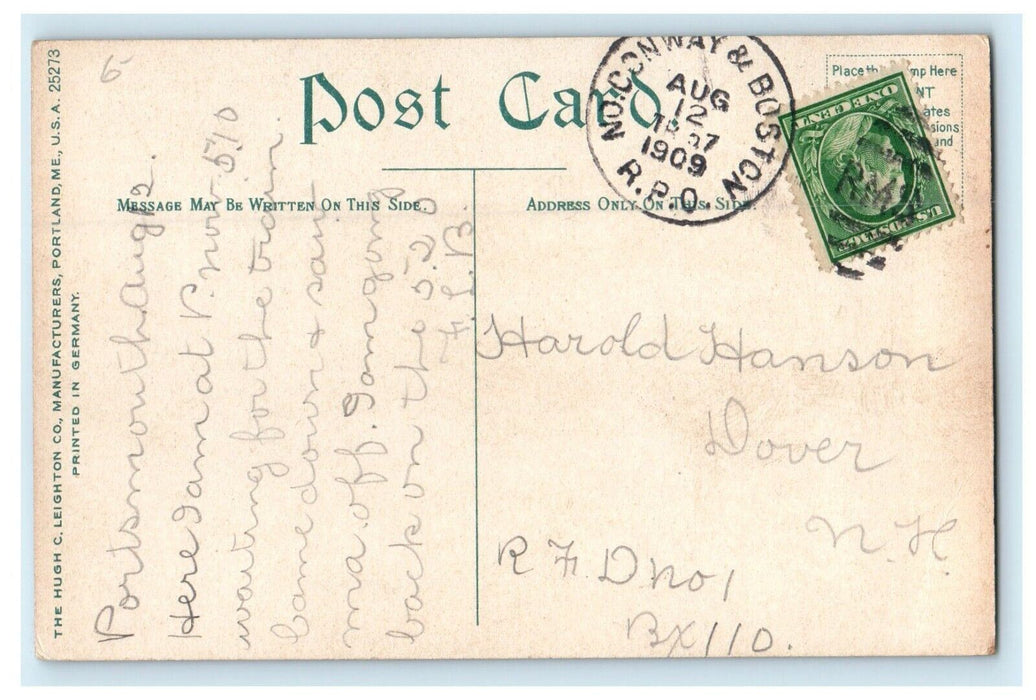 THE HUGH C. LEIGHTON CO., MANUFACTURERS, PORTLAND, ME., U.S.A. 25273
PRINTED IN GERMANY.
Post Card
MESSAGE MAY BE WRITTEN ON THIS SIDE.
Portsmouth Aug 12.
Here I am at P. now 5 10
waiting for the train.
Came down & saw
ma off. I am going
back on the 5.20
F. L. B.
NO. CONWAY & BOSTON
AUG
12
1909
R.P.O.
Place the Stamp Here
ONE CENT
U.S. POSTAGE
RMS
ADDRESS ONLY ON THIS SIDE.
Harold Hanson
Dover
N. H.
R F. D no 1
Bx 110.